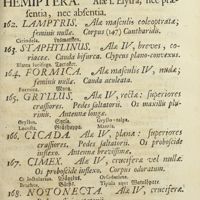 HEMIPTERA. Alæ 1. Elytra, nec præ-
sentia, nec absentia.
162. LAMPYRIS. Alæ masculis coleoptratæ;
feminis nullæ. Corpus (147) Cantharidis.
Cicindela.
163. STAPHYLINUS. Alæ IV, breves, co-
riaceæ. Cauda bifurca. Clypeus plano-convexus.
164. FORMICA. Alæ masculis IV, nudæ;
feminis nullæ. Cauda aculeata.
Formica. Myra.
165. GRYLLUS. Alæ IV, rectæ; superiores
crassiores. Pedes saltatorii. Os maxillis plu-
rimis. Antennæ longæ.
Gryllus.
Locusta.
166. CICADA. Alæ IV, planæ: superiores
crassiores. Pedes saltatorii. Os proboscide
inflexo. Antennæ brevissimæ.
167. CIMEX. Alæ IV, cruciferæ vel nullæ.
Os proboscide inflexo. Corpus odoratum.
168. NOTONECTA. Alæ IV, cruciferæ.